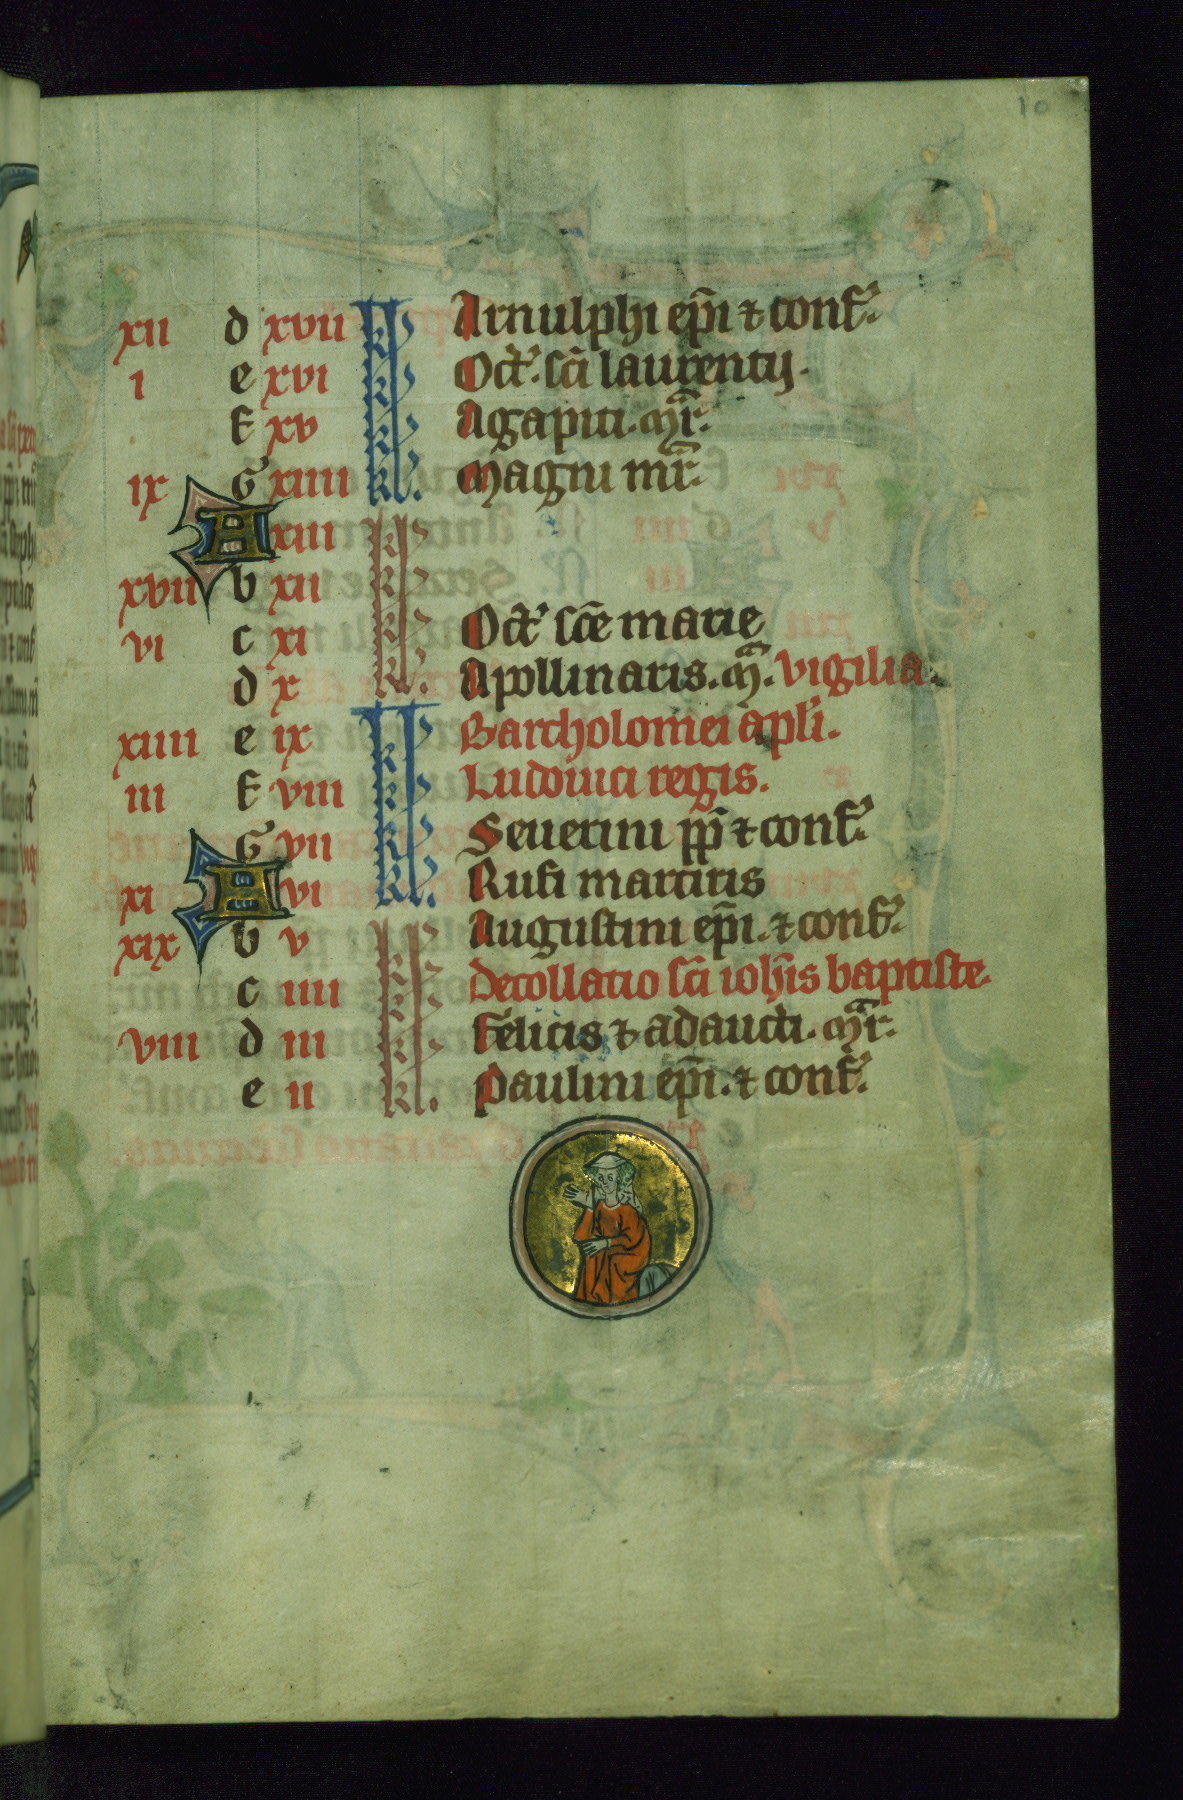 10
xii d xvii kł Arnulphi ep̄i ⁊ conf̄.
i e xvi kł Oct̄. sc̄i laurentij.
f xv kł Agapiti. m̄r.
ix G xiiii kł. Magni mr̄.
A xiii kł
xvii b xii kł
vi c xi kł Oct̄ sc̄e marie
d x kł. Apollinaris. m̄. vigilia.
xiiii e ix kł Bartholomei apl̄i.
iii f viii kł Ludouici regis.
G vii kł Seuerini pp̄ ⁊ conf̄.
xi A vi kł. Rufi martiris
xix b v kł Augustini ep̄i. ⁊ conf̄.
c iiii kł Decollatio sc̄i ioh̄is baptiste.
viii d iii kł Felicis ⁊ adaucti. m̄r.
e ii kł. Paulini ep̄i. ⁊ conf̄.